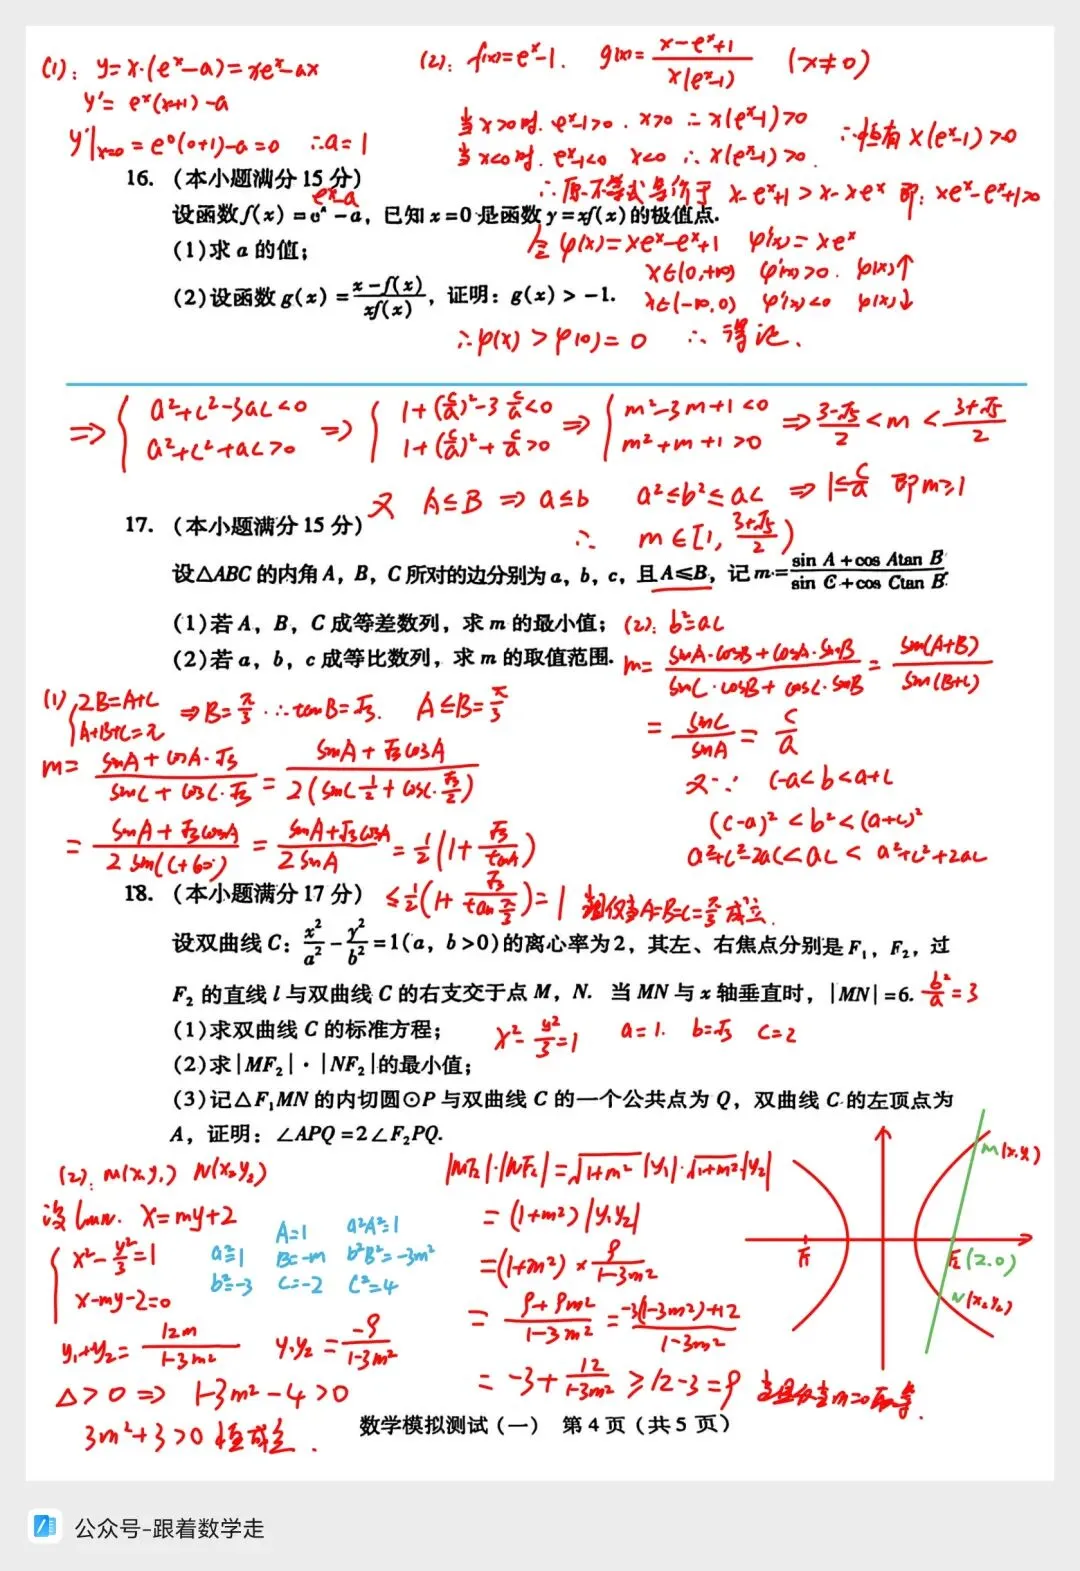 (1): y=x·(eˣ-a)=xeˣ-ax
y'= eˣ(x+1)-a
y'|x=0 = e⁰(0+1)-a=0 ∴a=1
(2): f(x)=eˣ-1. g(x)= (x-eˣ+1)/(x(eˣ-1)) (x≠0)
当x>0时. eˣ-1>0. x>0 ∴ x(eˣ-1)>0
当x<0时. eˣ-1<0 x<0 ∴ x(eˣ-1)>0.
∴恒有 x(eˣ-1)>0
∴原不等式等价于 x-eˣ+1>x-xeˣ 即: xeˣ-eˣ+1>0
16. (本小题满分 15 分)
eˣ-a
设函数 f(x)=eˣ-a, 已知 x=0 是函数 y=xf(x) 的极值点.
令 φ(x)=xeˣ-eˣ+1 φ'(x)=xeˣ
(1)求 a 的值;
x∈(0,+∞) φ'(x)>0. φ(x)↑
(2)设函数 g(x)= (x-f(x))/(xf(x)), 证明: g(x)>-1.
x∈(-∞,0) φ'(x)<0 φ(x)↓
∴φ(x)>φ(0)=0 ∴得证.
⇒ { a²+c²-3ac<0 a²+c²+ac>0 ⇒ { 1+(c/a)²-3 c/a<0 1+(c/a)²+ c/a>0 ⇒ { m²-3m+1<0 m²+m+1>0 ⇒ (3-√5)/2 < m < (3+√5)/2
又 A≤B ⇒ a≤b a²≤b²≤ac ⇒ 1≤c/a 即m≥1
17. (本小题满分 15 分)
∴ m∈[1, (3+√5)/2)
设△ABC 的内角 A, B, C 所对的边分别为 a, b, c, 且 A≤B, 记 m= (sin A+cos Atan B)/(sin C+cos Ctan B).
(1)若 A, B, C 成等差数列, 求 m 的最小值;
(2)若 a, b, c 成等比数列, 求 m 的取值范围.
(2): b²=ac
m= (sinA·cosB+cosA·sinB)/(sinC·cosB+cosC·sinB) = sin(A+B)/sin(B+C)
= sinC/sinA = c/a
又∵ c-a<b<a+c
(c-a)²<b²<(a+c)²
a²+c²-2ac<ac<a²+c²+2ac
(1) { 2B=A+C A+B+C=π ⇒B=π/3. ∴tanB=√3. A≤B=π/3
m= (sinA+cosA·√3)/(sinC+cosC·√3) = (sinA+√3cosA)/(2(sinC·1/2+cosC·√3/2))
= (sinA+√3cosA)/(2sin(C+60°)) = (sinA+√3cosA)/(2sinA) = 1/2(1+√3/tanA)
≤1/2(1+√3/tan π/3)=1 当且仅当A=B=C=π/3成立.
18. (本小题满分 17 分)
设双曲线 C: x²/a²-y²/b²=1(a, b>0)的离心率为2, 其左、右焦点分别是 F₁, F₂, 过
F₂ 的直线 l 与双曲线 C 的右支交于点 M, N. 当 MN 与 x 轴垂直时, |MN|=6.
b²/a=3
(1)求双曲线 C 的标准方程;
x²-y²/3=1 a=1. b=√3 c=2
(2)求|MF₂|·|NF₂|的最小值;
(3)记△F₁MN 的内切圆⊙P 与双曲线 C 的一个公共点为 Q, 双曲线 C 的左顶点为
A, 证明: ∠APQ=2∠F₂PQ.
(2): M(x₁y₁) N(x₂y₂)
设 lMN. x=my+2
{ x²-y²/3=1 x-my-2=0
a²=1 A=1 a²A²=1
b²=-3 B=-m b²B²=-3m²
C=-2 C²=4
y₁+y₂= 12m/(1-3m²) y₁y₂= -9/(1-3m²)
△>0 ⇒ 1-3m²-4>0
3m²+3>0 恒成立.
|MF₂|·|NF₂|=√(1+m²)|y₁|·√(1+m²)|y₂|
=(1+m²)|y₁y₂|
=(1+m²)× 9/(1-3m²)
= (9+9m²)/(1-3m²) = (-3(1-3m²)+12)/(1-3m²)
= -3+ 12/(1-3m²) ≥12-3=9 当且仅当m=0取等.
M(x₁y₁)
F₁
F₂(2.0)
N(x₂y₂)
数学模拟测试(一) 第 4 页 (共 5 页)
公众号-跟着数学走